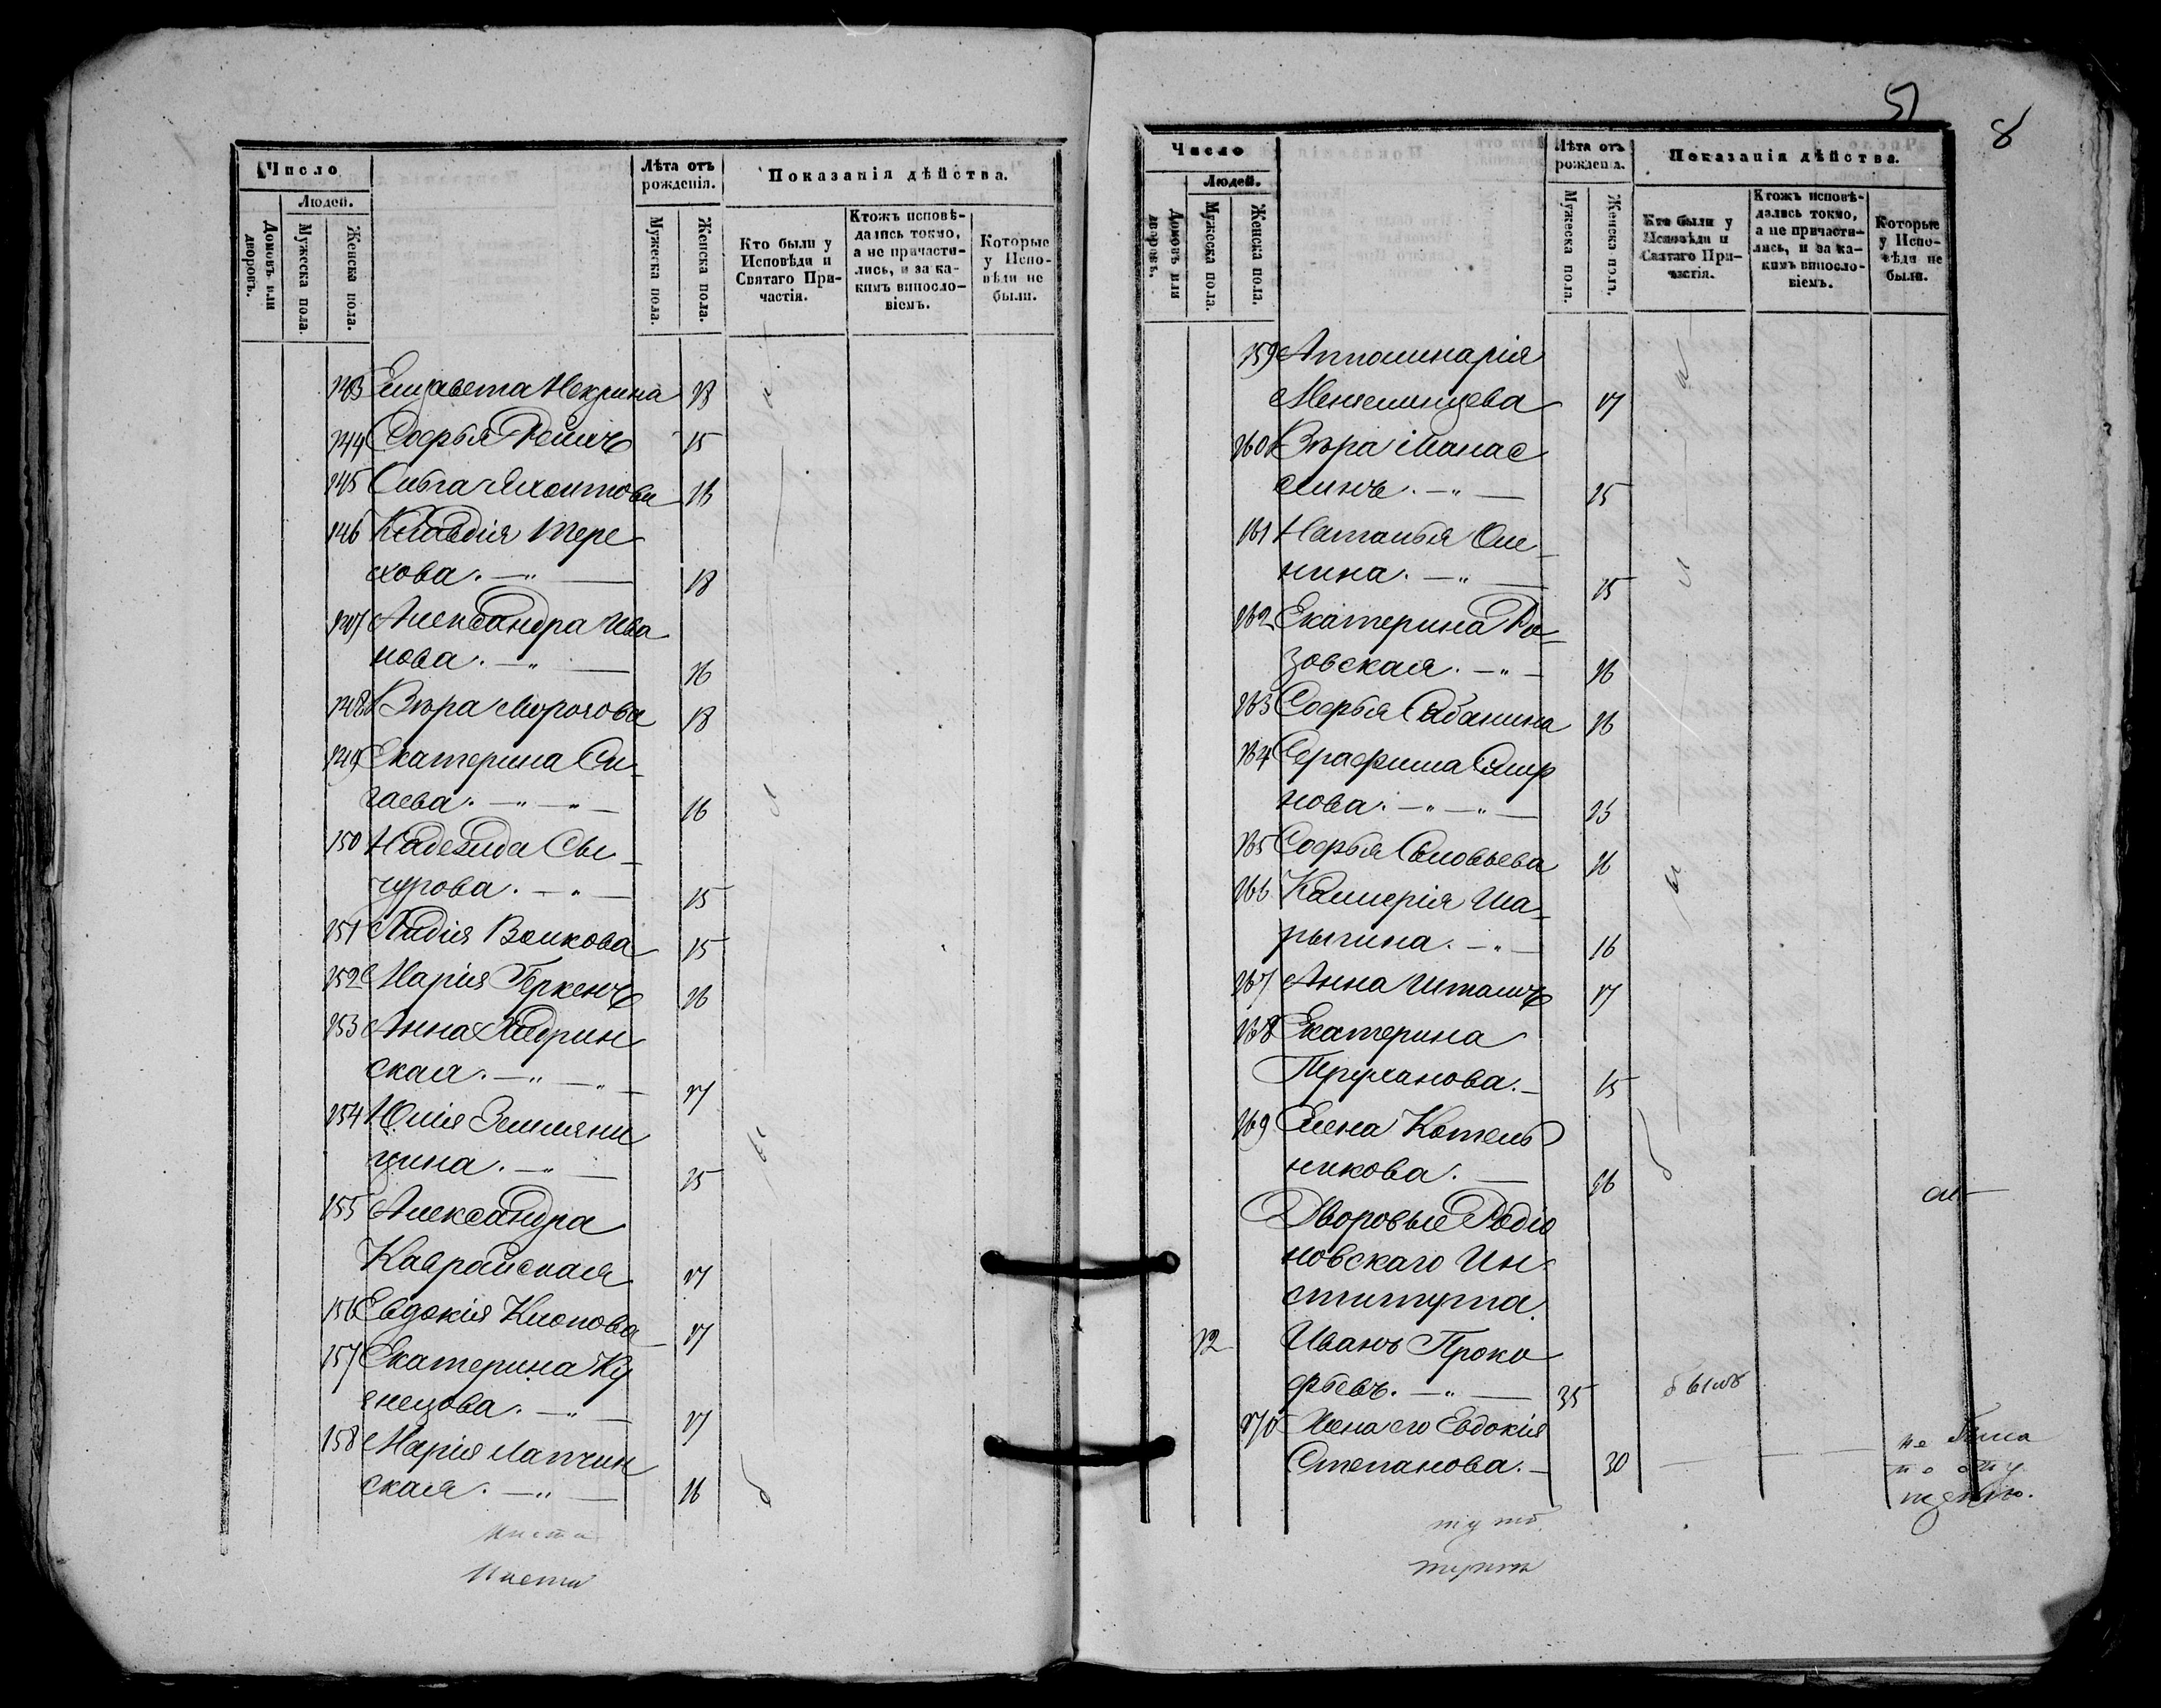 Число
Людей.
Домовъ или дворовъ.
Мужеска пола.
Женска пола.
Лѣта отъ рожденія.
Мужеска пола.
Женска пола.
Показанія дѣйства.
Кто были у Исповѣди и Святаго Причастія.
Ктожъ исповѣдались токмо, а не причастились, и за какимъ винословіемъ.
Которые у Исповѣди не были.
143 Елизавета Некрина 18
144 Софья 15
145 Ольга Яхонтова 16
146 Клавдія Тере
хова. —"— 18
147 Александра Ива
нова. —"— 16
148 Вѣра Морозова 18
149 Екатерина Си-
гаева. —"—"— 16
150 Надежда Сы-
чугова. —"— 15
151 Лидія Волкова 15
152 Марія Геркенъ 16
153 Анна Хадрин
ская. —"—"— 17
154 Юлія Земляни
цина. —"— 15
155 Александра
Каврайская 17
156 Евдокія Клопова 17
157 Екатерина Ку
знецова. —"— 17
158 Марія Лапчин
ская. —"— 16
51
8
Число
Людей.
Домовъ или дворовъ.
Мужеска пола.
Женска пола.
Лѣта отъ рожденія.
Мужеска пола.
Женска пола.
Показанія дѣйства.
Кто были у Исповѣди и Святаго Причастія.
Ктожъ исповѣдались токмо, а не причастились, и за какимъ винословіемъ.
Которые у Исповѣди не были.
159 Апполинарія
Мензелинцева 17
160 Вѣра Манас
сеинъ. —"— 15
161 Наталья Оле-
нина. —"— 15
162 Екатерина Ро-
зовская. —"— 16
163 Софья Сабанина 16
164 Серафима Смир
нова. —"—"— 15
165 Софья Соловьева 16
166 Калерія Ша-
рыгина. —"— 16
167 Анна Шталь 17
168 Екатерина
Трухманова. — 15
169 Елена Котель
никова. — 16
Дворовые Родіо
новскаго Ин-
ститута.
12 Иванъ Проко
фьевъ. —"— 35 былъ
170 Жена его Евдокія
Степанова. — 30 не была
по опу
щенію.